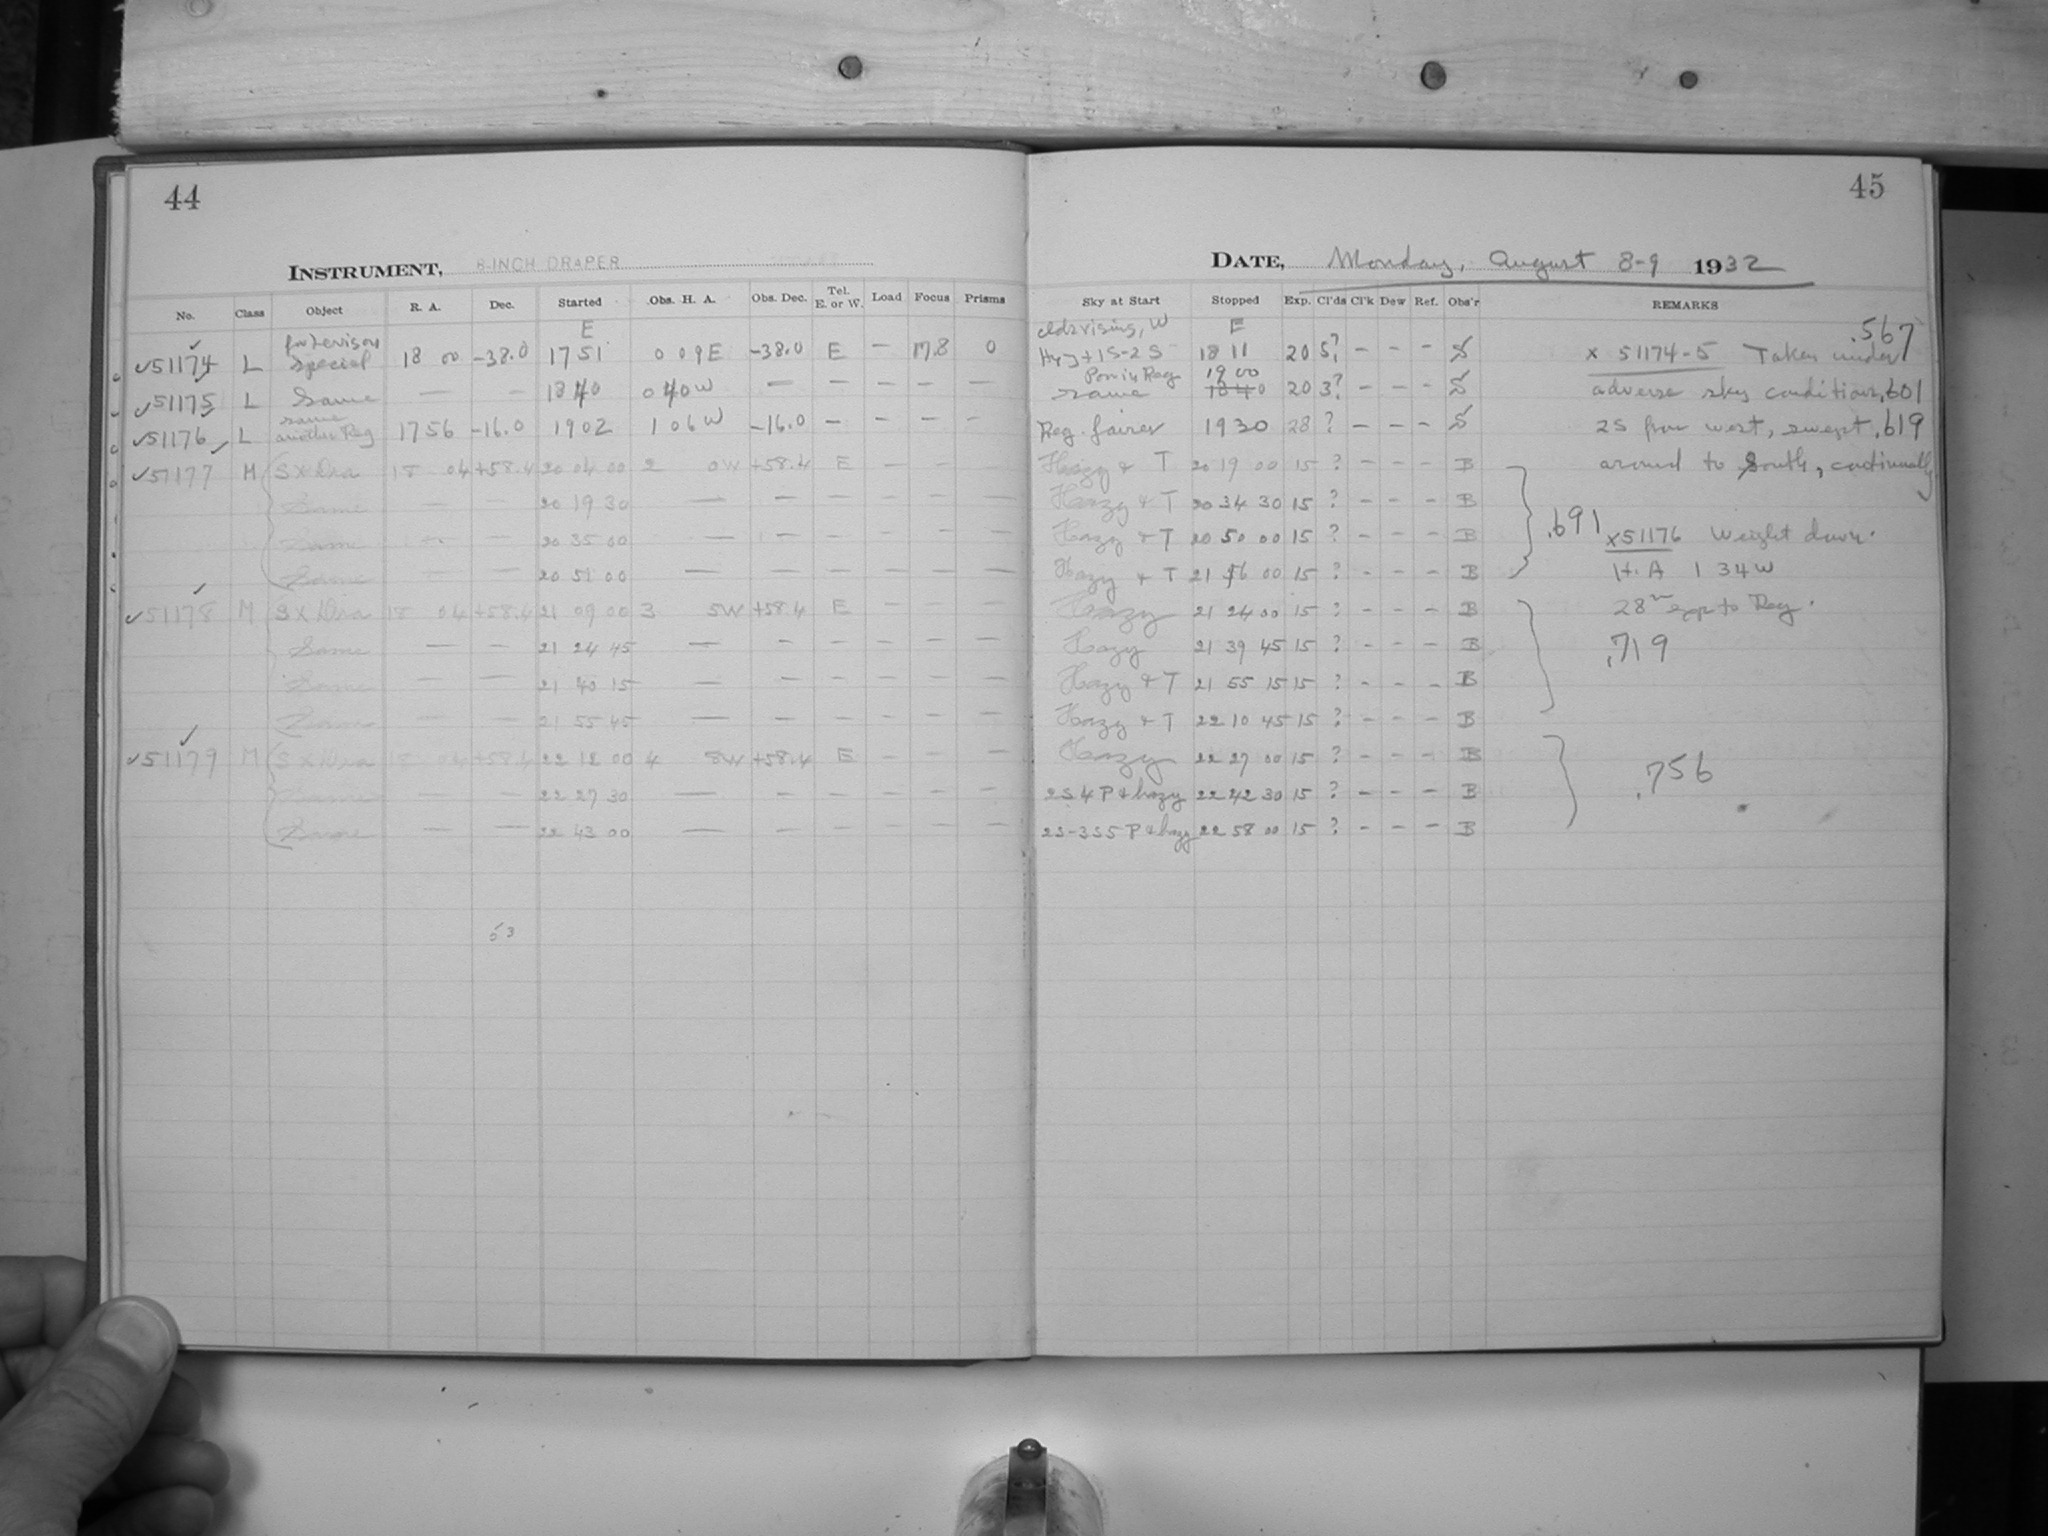 44
INSTRUMENT, 8-INCH DRAPER
No. Class Object R. A. Dec. Started Obs. H. A. Obs. Dec. Tel. E. or W. Load Focus Prisms
E
✓51174 L Special 18 00 -38.0 1751 0 09E -38.0 E — 17.8 0
✓51175 L Same — — 1840 0 40W — — — — —
✓51176 L same another Reg 1756 -16.0 1902 1 06W -16.0 — — — —
✓51177 M SX Dra 18 04 +58.4 20 04 00 2 0W +58.4 E — — —
Same — — 20 19 30 — — — — — —
Same — — 20 35 00 — — — — — —
Same — — 20 51 00 — — — — — —
✓51178 M SX Dra 18 04 +58.4 21 09 00 3 5W +58.4 E — — —
Same — — 21 24 45 — — — — — —
Same — — 21 40 15 — — — — — —
Same — — 21 55 45 — — — — — —
✓51179 M SX Dra 18 04 +58.4 22 12 00 4 8W +58.4 E — — —
Same — — 22 27 30 — — — — — —
Same — — 22 43 00 — — — — — —
53
45
DATE, Monday, August 8-9 1932
Sky at Start Stopped Exp. Cl'ds Cl'k Dew Ref. Obs'r REMARKS
clds rising, W E .567
Hzy + 1S-2S 18 11 20 5? — — — S x 51174-5 Taken under
Pon in Reg 19 00
same 1840 20 3? — — — S adverse sky conditions, .601
Reg. fairer 1930 28 ? — — — S 2S from west, swept .619
Hazy & T 20 19 00 15 ? — — — B around to South, continually
Hazy & T 20 34 30 15 ? — — — B
.691
Hazy & T 20 50 00 15 ? — — — B x51176 Weight down.
Hazy & T 21 06 00 15 ? — — — B H.A 1 34W
Hazy 21 24 00 15 ? — — — B 28m exp to Reg.
Hazy 21 39 45 15 ? — — — B .719
Hazy & T 21 55 15 15 ? — — — B
Hazy & T 22 10 45 15 ? — — — B
Hazy 22 27 00 15 ? — — — B .756
2S4P & hazy 22 42 30 15 ? — — — B
2S-3S5P & hazy 22 58 00 15 ? — — — B